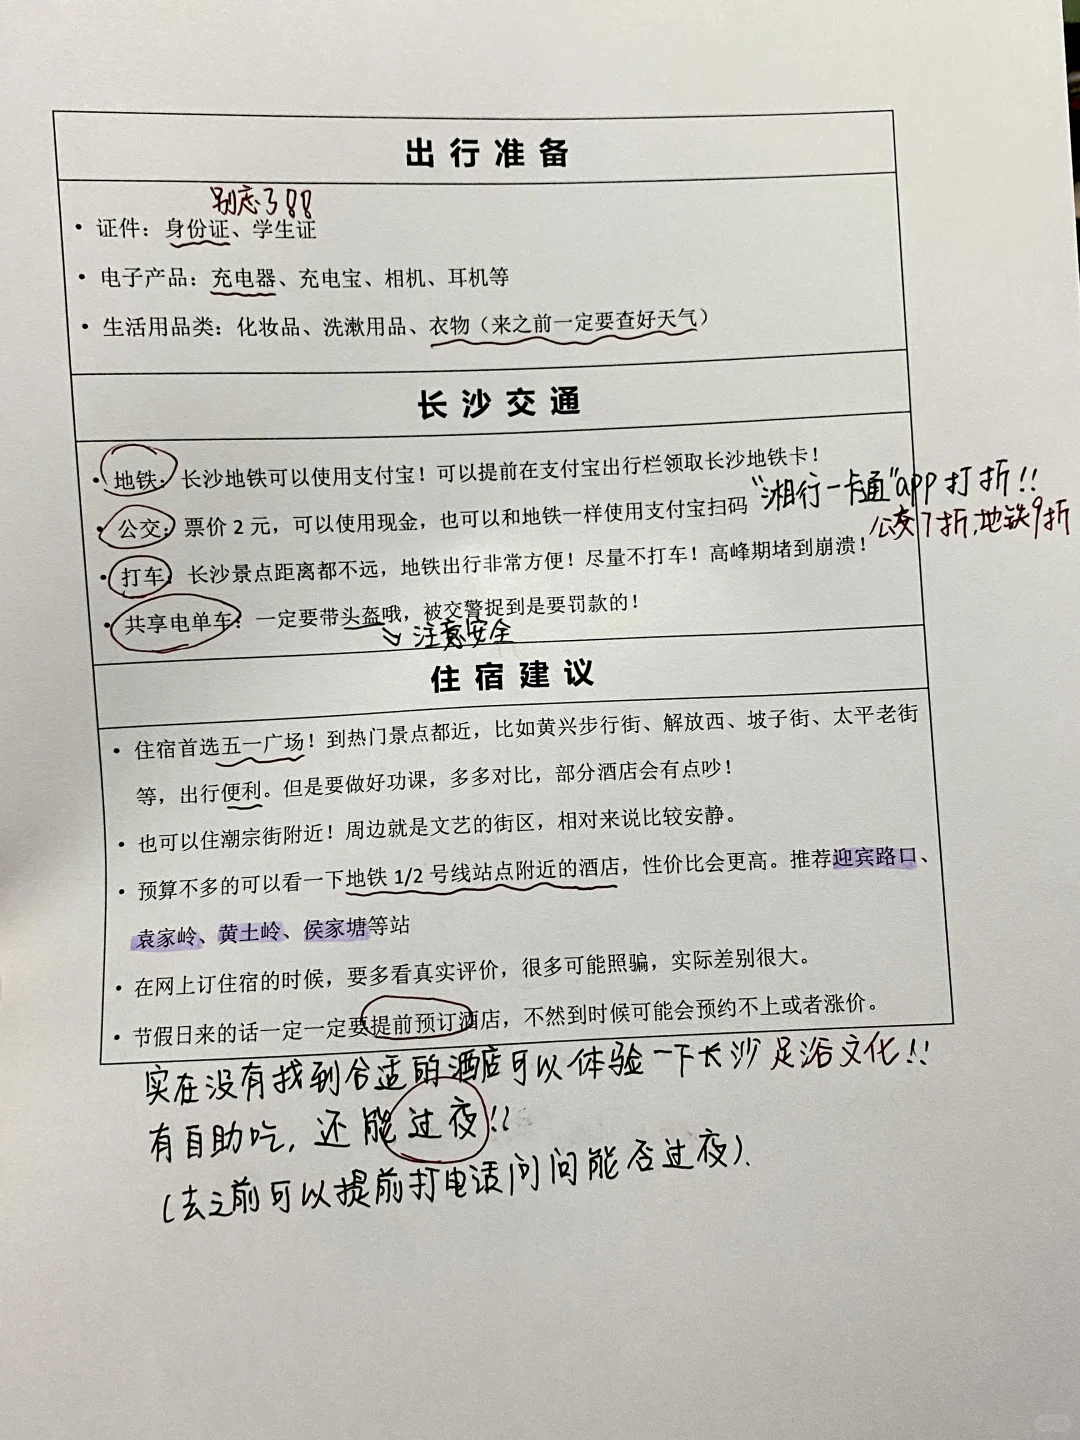 出行准备
别忘了!!
• 证件：身份证、学生证
• 电子产品：充电器、充电宝、相机、耳机等
• 生活用品类：化妆品、洗漱用品、衣物（来之前一定要查好天气）
长沙交通
• 地铁：长沙地铁可以使用支付宝！可以提前在支付宝出行栏领取长沙地铁卡！
“湘行一卡通”app打折!!
• 公交：票价 2 元，可以使用现金，也可以和地铁一样使用支付宝扫码
公交7折,地铁9折
• 打车：长沙景点距离都不远，地铁出行非常方便！尽量不打车！高峰期堵到崩溃！
• 共享电单车：一定要带头盔哦，被交警捉到是要罚款的！
注意安全
住宿建议
• 住宿首选五一广场！到热门景点都近，比如黄兴步行街、解放西、坡子街、太平老街
等，出行便利。但是要做好功课，多多对比，部分酒店会有点吵！
• 也可以住潮宗街附近！周边就是文艺的街区，相对来说比较安静。
• 预算不多的可以看一下地铁 1/2 号线站点附近的酒店，性价比会更高。推荐迎宾路口、
袁家岭、黄土岭、侯家塘等站
• 在网上订住宿的时候，要多看真实评价，很多可能照骗，实际差别很大。
• 节假日来的话一定一定要提前预订酒店，不然到时候可能会预约不上或者涨价。
实在没有找到合适的酒店可以体验一下长沙足浴文化!!
有自助吃，还能过夜!!
(去之前可以提前打电话问问能否过夜).